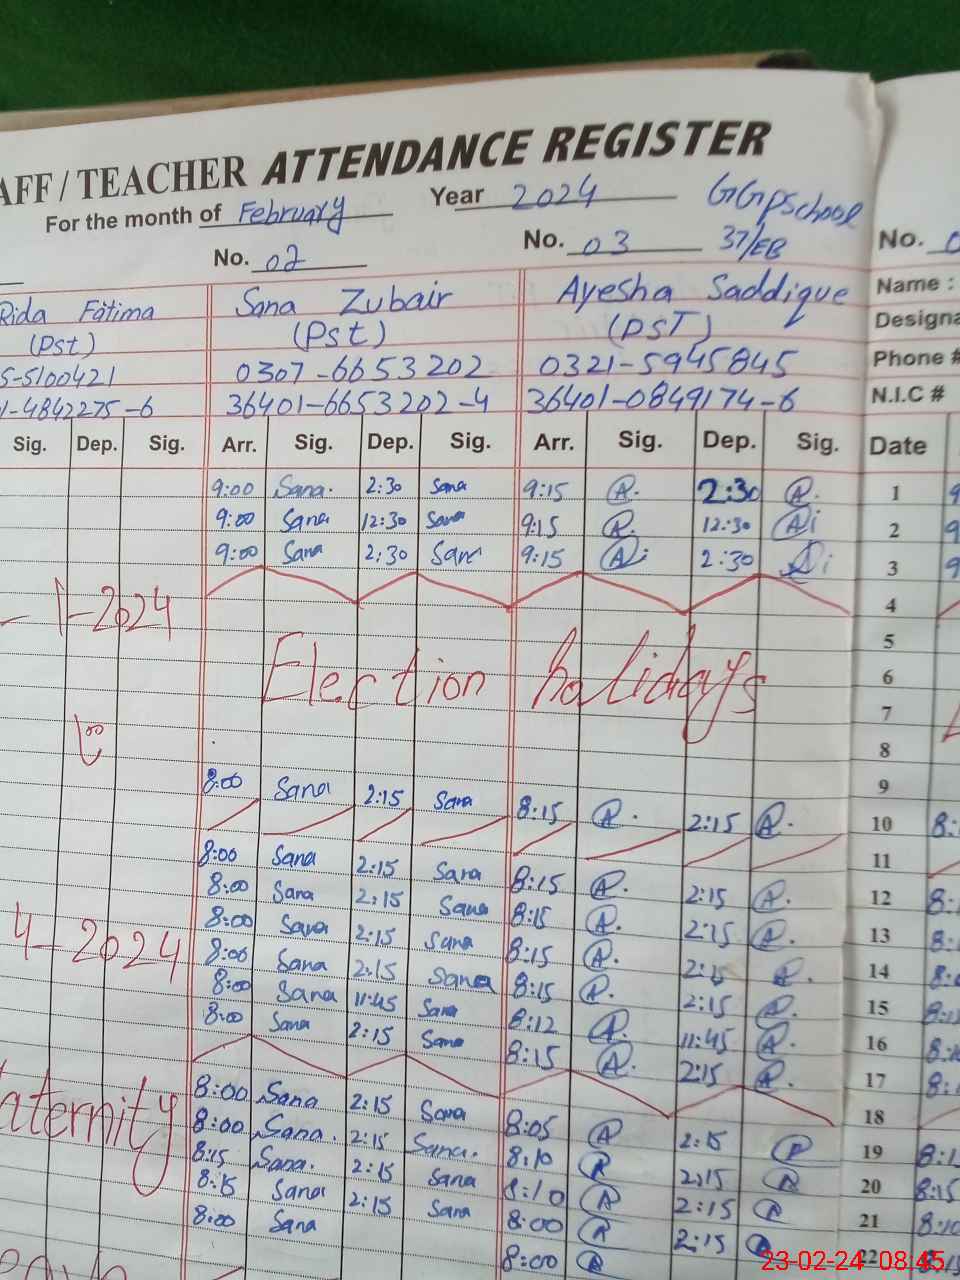 AFF / TEACHER ATTENDANCE REGISTER
For the month of February Year 2024 GGPSchool
No. 02 No. 03 37/EB No.
Rida Fatima Sana Zubair Ayesha Saddique Name :
(Pst) (Pst) (PST) Designa
S-5100421 0307-6653202 0321-5945845 Phone #
1-4842275-6 36401-6653202-4 36401-0849174-6 N.I.C #
Sig. Dep. Sig. Arr. Sig. Dep. Sig. Arr. Sig. Dep. Sig. Date
9:00 Sana. 2:30 Sana 9:15 A. 2:30 A. 1
9:00 Sana 12:30 Sana 9:15 A. 12:30 A 2
9:00 Sana 2:30 Sana 9:15 A 2:30 3
1-2024 4
5
Election holidays 6
7
8
8:00 Sana 2:15 Sana 9
8:15 A. 2:15 A. 10
11
8:00 Sana 2:15 Sana 8:15 A. 2:15 A. 12
8:00 Sana 2:15 Sana 8:15 A. 2:15 A. 13
8:00 Sana 2:15 Sana 8:15 A. 2:15 A. 14
4-2024 8:00 Sana 2:15 Sana 8:15 A. 2:15 A. 15
8:00 Sana 11:45 Sana 8:12 A. 11:45 A. 16
8:00 Sana 2:15 Sana 8:15 A. 2:15 A. 17
18
aternity 8:00 Sana 2:15 Sana 8:05 A 2:15 A 19
8:00 Sana. 2:15 Sana. 8:10 A 2:15 A 20
8:15 Sana. 2:15 Sana 8:10 A 2:15 A 21
8:15 Sana 2:15 Sana 8:00 A 2:15 A 22
8:00 Sana 8:00 A
23-02-24 08:45